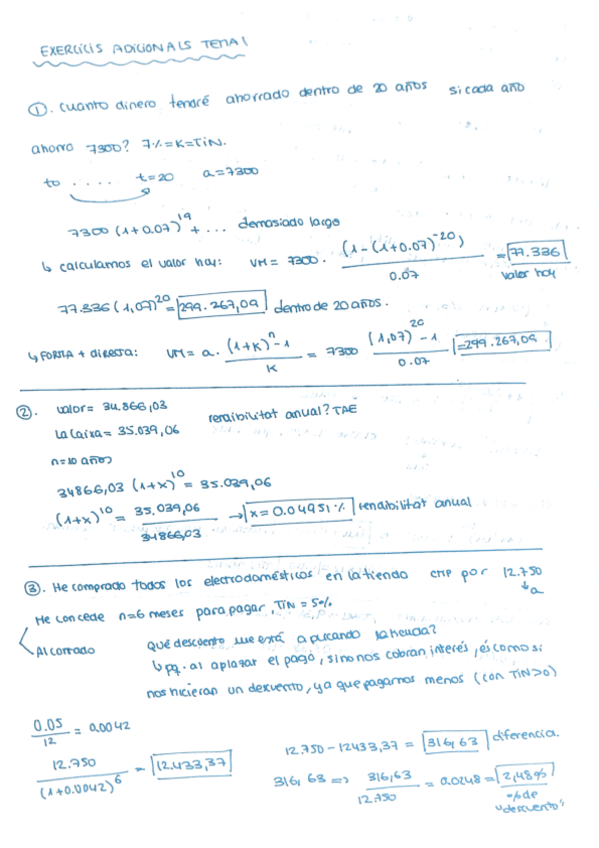 EXERCICIS ADICIONALS TEMA 1
①. Cuanto dinero tendré ahorrado dentro de 20 años si cada año
ahorro 7300? 7% = K = TiN.
to .... t=20 a=7300
7300 (1+0.07)^19 + ... demasiado largo
↳ calculamos el valor hoy: VM = 7300 · (1-(1+0.07)^-20) / 0.07 = 77.336
valor hoy
77.336 (1,07)^20 = 299.267,09 dentro de 20 años.
↳ FORMA + directa: VM = a · (1+K)^n - 1 / K = 7300 (1,07)^20 - 1 / 0.07 = 299.267,09
②. valor = 34.866,03
rendibilitat anual? TAE
La Caixa = 35.039,06
n=10 años
34866,03 (1+x)^10 = 35.039,06
(1+x)^10 = 35.039,06 / 34866,03 → x = 0.04951% rendibilitat anual
③. He comprado todos los electrodomésticos en la tienda CMP por 12.750
↓ a
Me concede n=6 meses para pagar, TiN = 5%
Al contado
Qué descuento me está aplicando la tienda?
↳ pq. al aplazar el pago, si no nos cobran interés, és como si
nos hicieran un descuento, ya que pagamos menos (con TiN>0)
0.05 / 12 = 0.0042
12.750 / (1+0.0042)^6 = 12.433,37
12.750 - 12433,37 = 316,63 diferencia.
316,63 => 316,63 / 12.750 = 0.0248 = 2,48%
% de
"descuento"